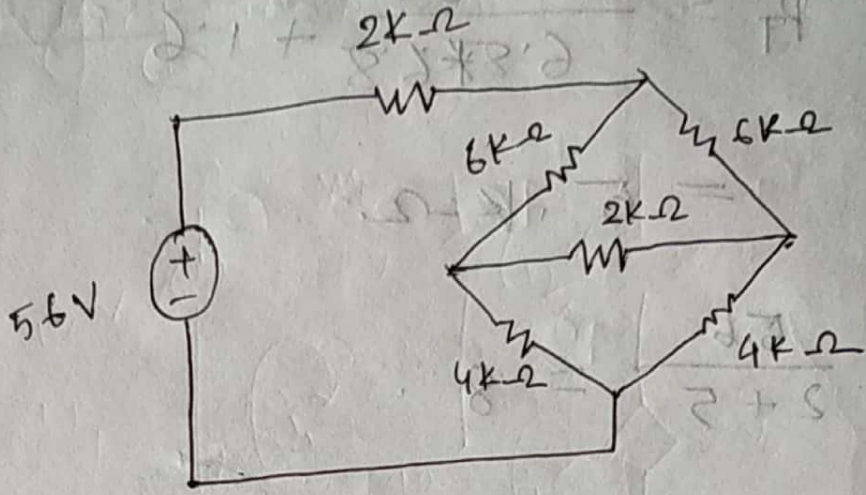 2KΩ
6KΩ
6KΩ
2KΩ
+
−
56V
4KΩ
4KΩ